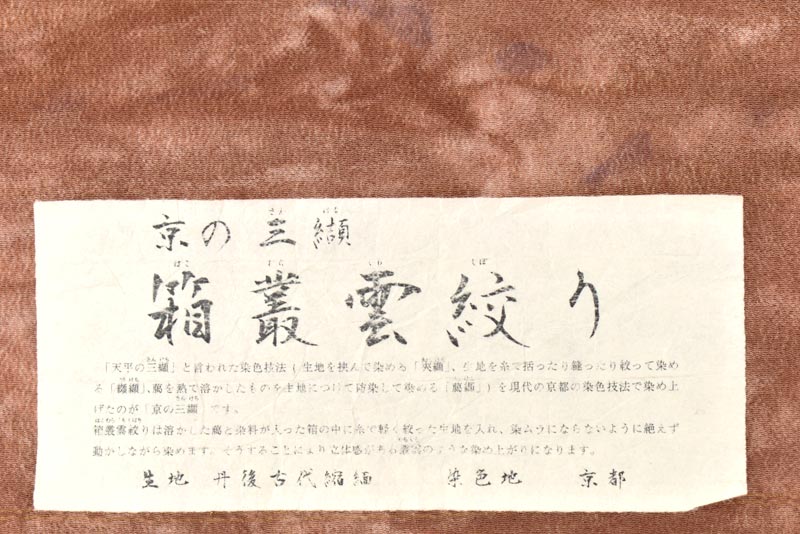 京の三纈
箱叢雲絞り
「天平の三纈」と言われた染色技法(生地を挟んで染める「夾纈」、生地を糸で括ったり縫ったり絞って染め
る「纐纈」、蔦を熱で溶かしたものを生地につけて防染して染める「﨟纈」)を現代の京都の染色技法で染め上
げたのが「京の三纈」です。
箱叢雲絞りは溶かした﨟と染料が入った箱の中に糸で軽く絞った生地を入れ、染ムラにならないように絶えず
動かしながら染めます。そうすることにより立体感がある叢雲のような染め上がりになります。
生地 丹後古代縮緬 染色地 京都